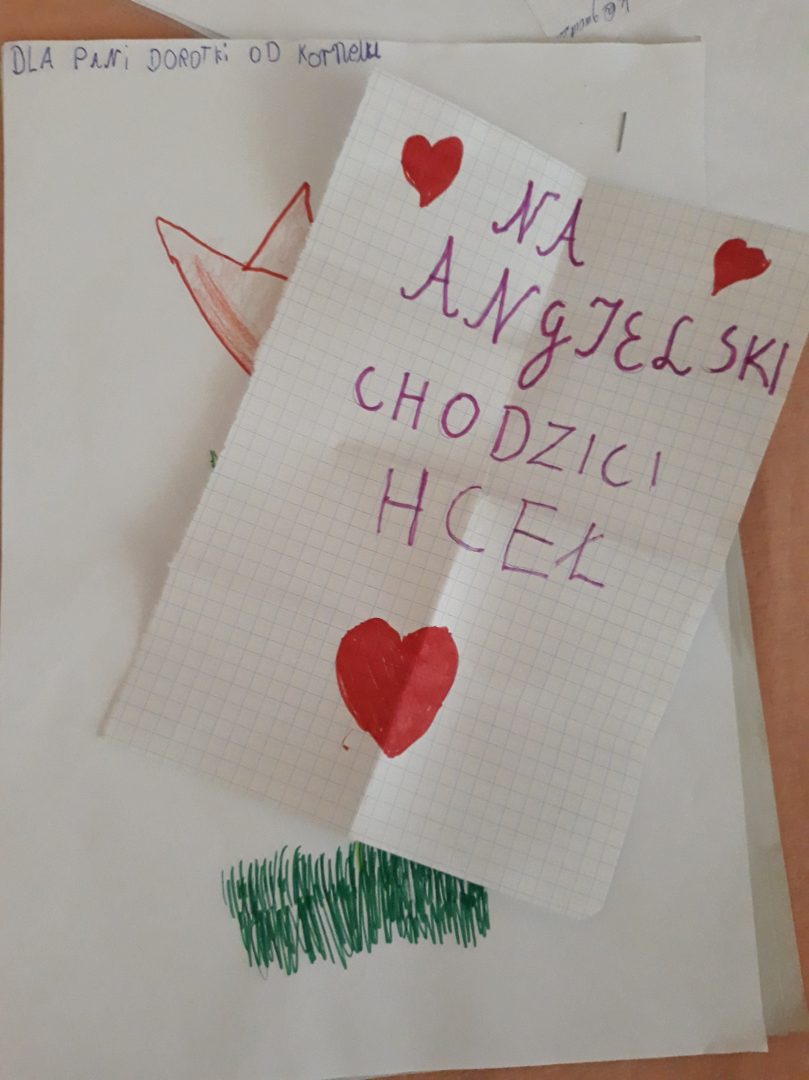 DLA PANi DOROTKi OD KORNELKi
NA
ANGIELSKI
CHODZICI
HCEŁ